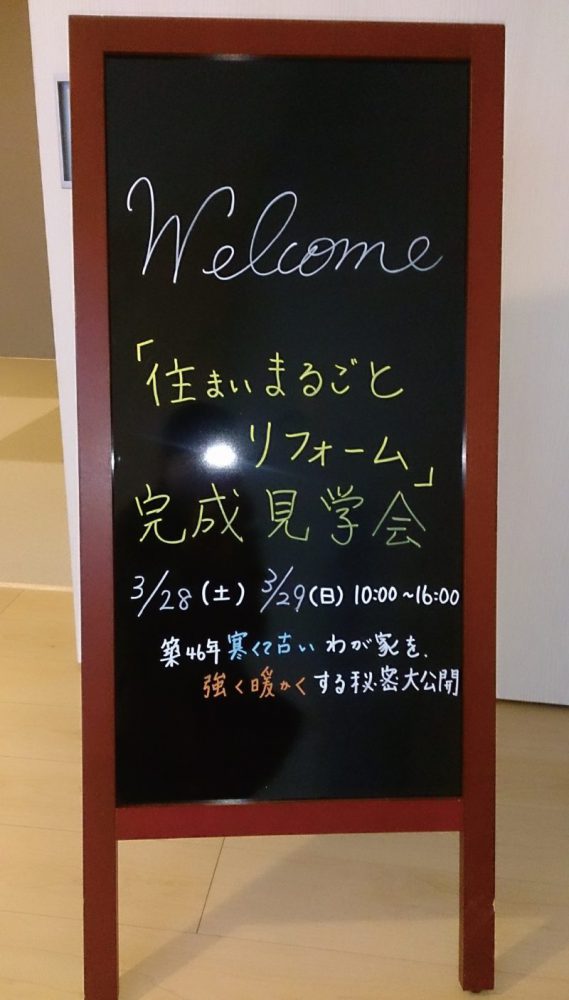 Welcome
「住まいまるごと
リフォーム」
完成見学会
3/28(土) 3/29(日) 10:00~16:00
築46年寒くて古いわが家を、
強く暖かくする秘密大公開